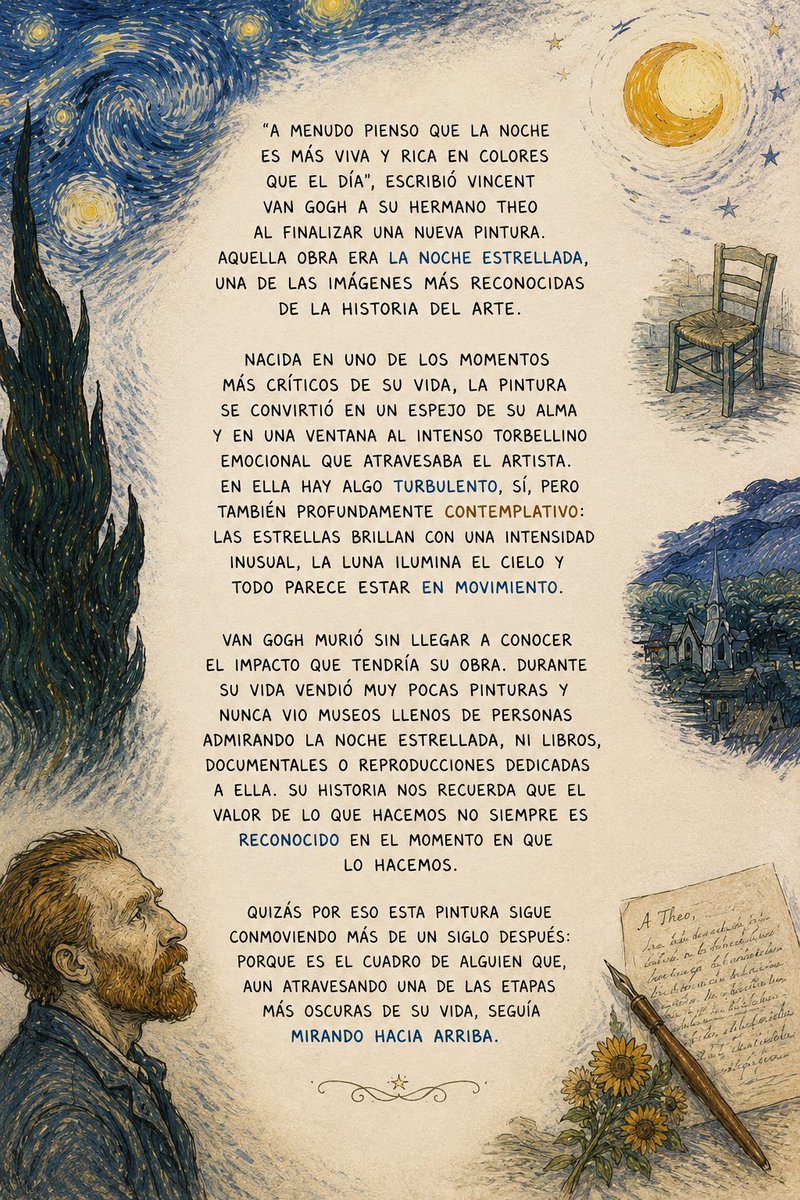 “A MENUDO PIENSO QUE LA NOCHE
ES MÁS VIVA Y RICA EN COLORES
QUE EL DÍA”, ESCRIBIÓ VINCENT
VAN GOGH A SU HERMANO THEO
AL FINALIZAR UNA NUEVA PINTURA.
AQUELLA OBRA ERA LA NOCHE ESTRELLADA,
UNA DE LAS IMÁGENES MÁS RECONOCIDAS
DE LA HISTORIA DEL ARTE.
NACIDA EN UNO DE LOS MOMENTOS
MÁS CRÍTICOS DE SU VIDA, LA PINTURA
SE CONVIRTIÓ EN UN ESPEJO DE SU ALMA
Y EN UNA VENTANA AL INTENSO TORBELLINO
EMOCIONAL QUE ATRAVESABA EL ARTISTA.
EN ELLA HAY ALGO TURBULENTO, SÍ, PERO
TAMBIÉN PROFUNDAMENTE CONTEMPLATIVO:
LAS ESTRELLAS BRILLAN CON UNA INTENSIDAD
INUSUAL, LA LUNA ILUMINA EL CIELO Y
TODO PARECE ESTAR EN MOVIMIENTO.
VAN GOGH MURIÓ SIN LLEGAR A CONOCER
EL IMPACTO QUE TENDRÍA SU OBRA. DURANTE
SU VIDA VENDIÓ MUY POCAS PINTURAS Y
NUNCA VIO MUSEOS LLENOS DE PERSONAS
ADMIRANDO LA NOCHE ESTRELLADA, NI LIBROS,
DOCUMENTALES O REPRODUCCIONES DEDICADAS
A ELLA. SU HISTORIA NOS RECUERDA QUE EL
VALOR DE LO QUE HACEMOS NO SIEMPRE ES
RECONOCIDO EN EL MOMENTO EN QUE
LO HACEMOS.
QUIZÁS POR ESO ESTA PINTURA SIGUE
CONMOVIENDO MÁS DE UN SIGLO DESPUÉS:
PORQUE ES EL CUADRO DE ALGUIEN QUE,
AUN ATRAVESANDO UNA DE LAS ETAPAS
MÁS OSCURAS DE SU VIDA, SEGUÍA
MIRANDO HACIA ARRIBA.
A Theo,